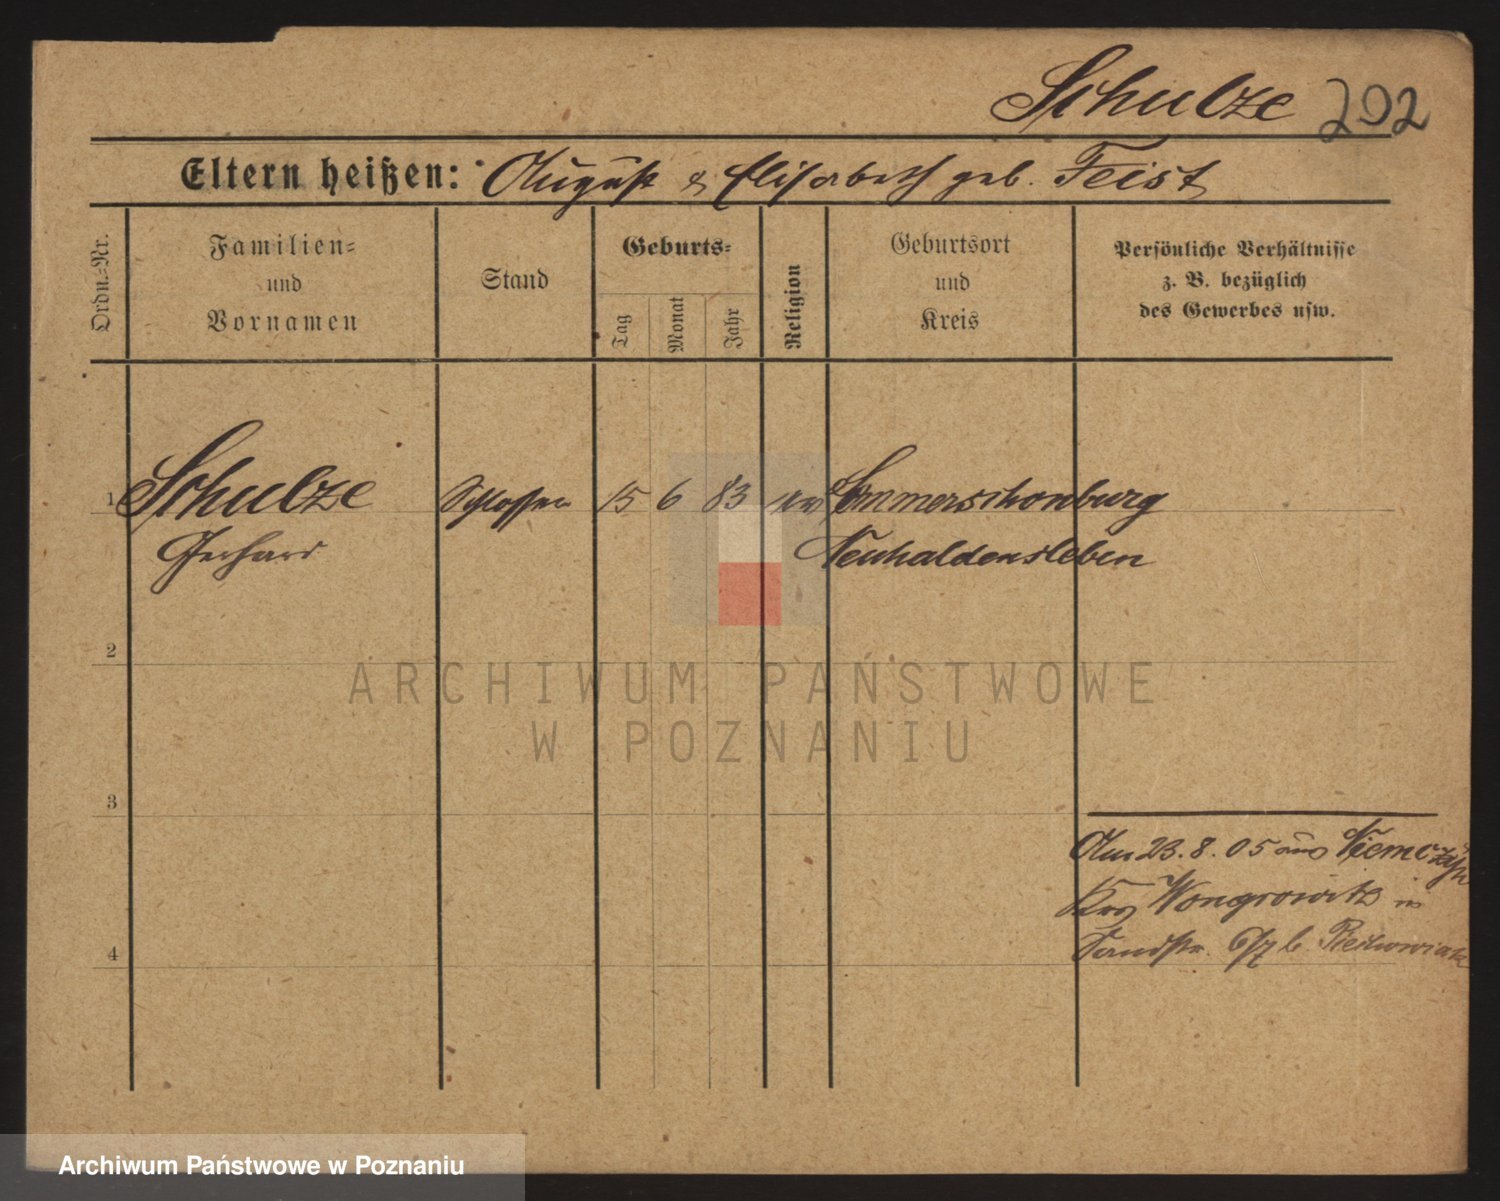 Schulze 202
Eltern heißen: August & Elisabeth geb. Feist
Ordn.-Nr.
Familien-
und
Vornamen
Stand
Geburts-
Tag
Monat
Jahr
Religion
Geburtsort
und
Kreis
Persönliche Verhältnisse
z. B. bezüglich
des Gewerbes usw.
1 Schulze Schlosser 15 6 83 Sommerschonburg
Gerhard Neuhaldensleben
2
ARCHIWUM PAŃSTWOWE
W POZNANIU
3
Am 23.8.05 aus
Wongrowitz in
4 Sandstr. 6/7 b.
Archiwum Państwowe w Poznaniu